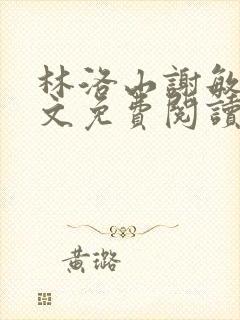 林洛山謝敏
文免費閱讀
黃璐